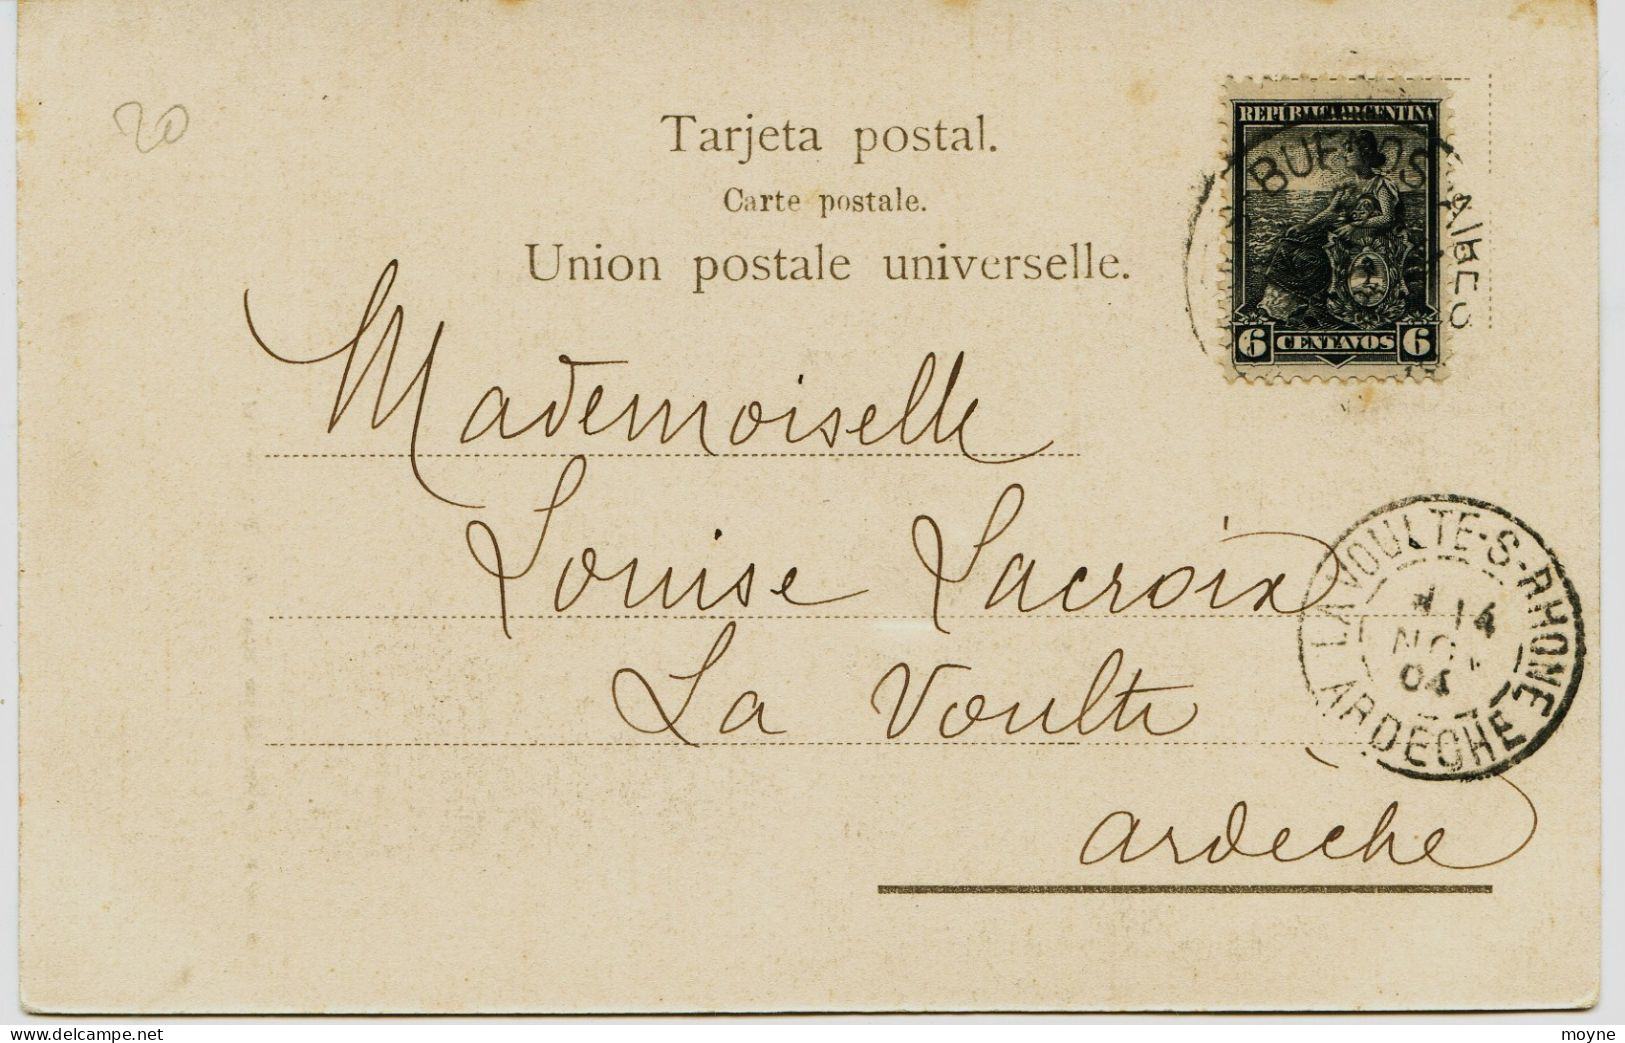 20
Tarjeta postal.
Carte postale.
Union postale universelle.
REPUBLICA ARGENTINA
BUENOS AIRES
6 CENTAVOS 6
Mademoiselle
Louise Lacroix
La Voulte
ardeche
LA VOULTE-S-RHONE
14
04
ARDECHE
delcampe.net
moyne